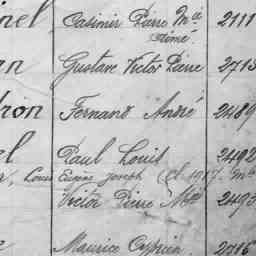 nel Casimir Pierre Mie 2111
Aimé
Gustave Victor Pierre 2713
dron Fernand André 2489
el Paul Louis 2492
Louis Eugène Joseph (cl. 1917.
Victor Pierre Mie 2493
Maurice Cyprien 2716